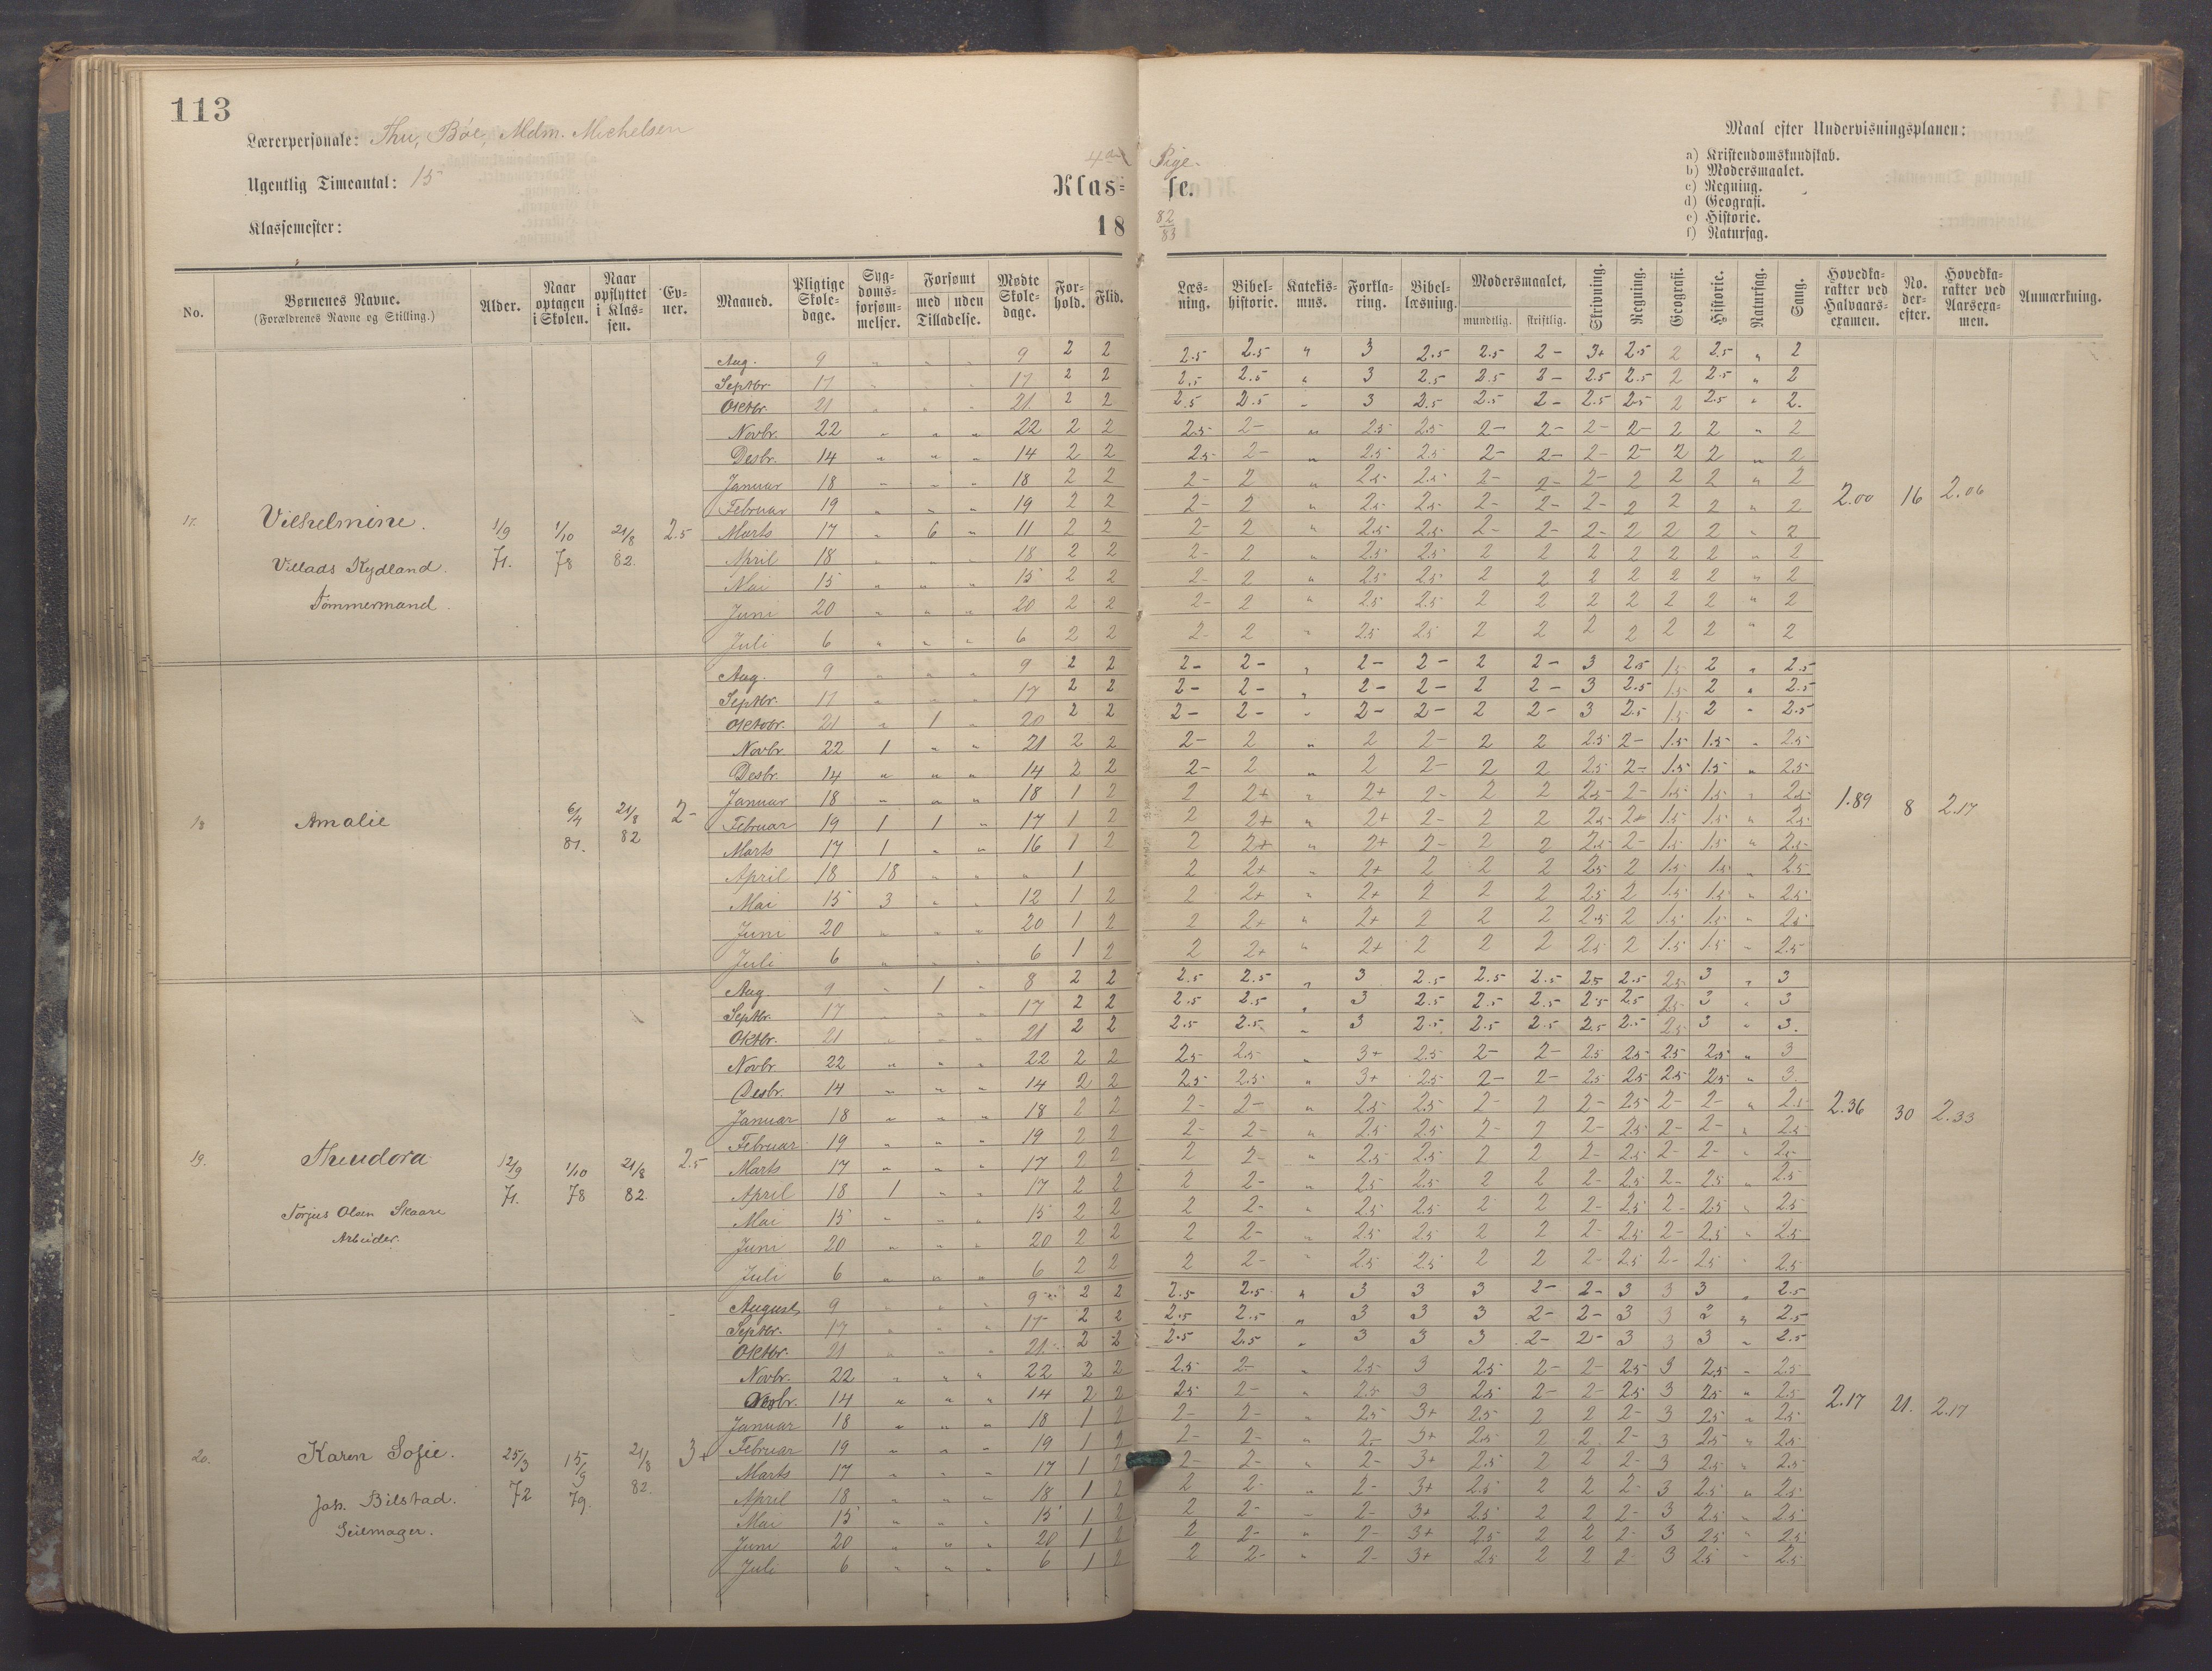 113
Lærerpersonale: Thu, Böe, Mdm. Michelsen
Ugentlig Timeantal: 15
Klassemester:
4de Pige-
Klas= se.
18 82/83
Maal efter Undervisningsplanen:
a) Kristendomskundskab.
b) Modersmaalet.
c) Regning.
d) Geografi.
e) Historie.
f) Naturfag.
No. Børnenes Navne. (Forældrenes Navne og Stilling.) Alder. Naar optagen i Skolen. Naar opflyttet i Klassen. Evner. Maaned. Pligtige Skoledage. Sygdomsforsømmelser. Forsømt med uden Tilladelse. Mødte Skoledage. Forhold. Flid. Læsning. Bibelhistorie. Katekismus. Forklaring. Bibellæsning. Modersmaalet, mundtlig. skriftlig. Skrivning. Regning. Geografi. Historie. Naturfag. Sang. Hovedkarakter ved Halvaarsexamen. No. derefter. Hovedkarakter ved Aarsexamen. Anmærkning.
17. Vilhelmine. Villads Kydland. Tömmermand. 1/9 71. 1/10 78 21/8 82. 2.5 2.00 16 2.06
Aug. 9 " " " 9 2 2 2.5 2.5 " 3 2.5 2.5 2- 3+ 2.5 2 2.5 " 2
Septbr. 17 " " " 17 2 2 2.5 2.5 " 3 2.5 2.5 2- 2.5 2.5 2 2.5 " 2
Oktbr. 21 " " " 21 2 2 2.5 2.5 " 3 2.5 2.5 2- 2.5 2.5 2 2.5 " 2.
Novbr. 22 " " " 22 2 2 2.5 2- " 2.5 2.5 2- 2- 2- 2- 2 2 " 2
Desbr. 14 " " " 14 2 2 2.5 2- " 2.5 2.5 2- 2- 2- 2- 2 2 " 2
Januar 18 " " " 18 2 2 2- 2 " 2.5 2.5 2- 2- 2- 2 2 2 " 2
Februar 19 " " " 19 2 2 2- 2 " 2.5 2.5 2- 2- 2- 2 2 2 " 2
Marts 17 " 6 " 11 2 2 2- 2 " 2.5 2.5 2- 2- 2- 2 2 2 " 2
April 18 " " " 18 2 2 2- 2 " 2.5 2.5 2 2 2 2 2 2 " 2
Mai 15 " " " 15 2 2 2- 2 " 2.5 2.5 2 2 2 2 2 2 " 2
Juni 20 " " " 20 2 2 2- 2 " 2.5 2.5 2 2 2 2 2 2 " 2
Juli 6 " " " 6 2 2 2- 2 " 2.5 2.5 2 2 2 2 2 2 " 2
18 Amalie 6/4 81. 21/8 82 2- 1.89 8 2.17
Aug. 9 " " " 9 2 2 2- 2- " 2- 2- 2 2- 3 2.5 1.5 2 " 2.5
Septbr. 17 " " " 17 2 2 2- 2- " 2- 2- 2 2- 3 2.5 1.5 2 " 2.5
Oktobr. 21 " 1 " 20 2 2 2- 2- " 2- 2- 2 2- 3 2.5 1.5 2 " 2.5
Novbr. 22 1 " " 21 2 2 2- 2 " 2 2- 2 2 2.5 2- 1.5 1.5 " 2.5
Desbr. 14 " " " 14 2 2 2- 2 " 2 2- 2 2 2.5 2- 1.5 1.5 " 2.5
Januar 18 " " " 18 1 2 2 2+ " 2+ 2- 2 2 2.5 2- 1.5 1.5 " 2.5
Februar 19 1 1 " 17 1 2 2 2+ " 2+ 2- 2 2 2.5 2+ 1.5 1.5 " 2.5
Marts 17 1 " " 16 1 2 2 2+ " 2+ 2- 2 2 2.5 2- 1.5 1.5 " 2.5
April 18 18 " " " 1 2 2+ " 2+ 2 2 2 2.5 2 1.5 1.5 " 2.5
Mai 15 3 " " 12 1 2 2 2+ " 2+ 2 2 2 2.5 2 1.5 1.5 " 2.5
Juni 20 " " " 20 1 2 2 2+ " 2+ 2 2 2 2.5 2 1.5 1.5 " 2.5
Juli 6 " " " 6 1 2 2 2+ " 2+ 2 2 2 2.5 2 1.5 1.5 " 2.5
19. Theodora Torjus Olsen Skaare Arbeider. 12/9 71. 1/10 78 21/8 82. 2.5 2.36 30 2.33
Aug. 9 " 1 " 8 2 2 2.5 2.5 " 3 2.5 2.5 2.5 2.5 2.5 2.5 3 " 3
Septbr. 17 " " " 17 2 2 2.5 2.5 " 3 2.5 2.5 2.5 2.5 2.5 2.5 3 " 3
Oktbr. 21 " " " 21 2 2 2.5 2.5 " 3 2.5 2.5 2.5 2.5 2.5 2.5 3 " 3.
Novbr. 22 " " " 22 2 2 2.5 2.5 " 3+ 2.5 2- 2- 2.5 2.5 2.5 2.5 " 3
Desbr. 14 " " " 14 2 2 2.5 2.5 " 3+ 2.5 2- 2- 2.5 2.5 2.5 2.5 " 3.
Januar 18 " " " 18 2 2 2- 2- " 2.5 2.5 2- 2 2- 2.5 2- 2- " 2.5
Februar 19 " " " 19 2 2 2- 2- " 2.5 2.5 2- 2 2- 2.5 2- 2- " 2.5
Marts 17 " " " 17 2 2 2 2- " 2.5 2.5 2 2 2- 2.5 2- 2- " 2.5
April 18 1 " " 17 2 2 2 2- " 2.5 2.5 2 2 2- 2.5 2- 2.5 " 2.5
Mai 15 " " " 15 2 2 2 2- " 2.5 2.5 2 2 2- 2.5 2- 2.5 " 2.5
Juni 20 " " " 20 2 2 2 2- " 2.5 2.5 2 2 2- 2.5 2- 2.5 " 2.5
Juli 6 " " " 6 2 2 2 2- " 2.5 2.5 2 2 2- 2.5 2- 2.5 " 2.5
20. Karen Sofie. Joh. Bilstad. Seilmager. 25/3 72 15/9 79. 21/8 82. 3+ 2.17 21. 2.17
August 9 " " " 9 2 2 2.5 2.5 " 3 3 3 2- 2- 3 3 3 " 2.5
Septbr. 17 " " " 17 2 2 2.5 2.5 " 3 3 3 2- 2- 3 3 3 " 2.5
Oktbr. 21 " " " 21 2 2 2.5 2.5 " 3 3 3 2- 2- 3 3 3 " 2.5
Novbr. 22 " " " 22 2 2 2.5 2- " 2.5 3 2.5 2- 2- 2.5 3 2.5 " 2.5
Desbr. 14 " " " 14 2 2 2.5 2- " 2.5 3 2.5 2- 2- 2.5 3 2.5 " 2.5
Januar 18 " " " 18 1 2 2- 2- " 2.5 3+ 2.5 2 2 2- 3 2.5 " 2.5
Februar 19 " " " 19 1 2 2- 2- " 2- 3+ 2.5 2 2 2- 3 2.5 " 2.5
Marts 17 " " " 17 1 2 2- 2- " 2- 3+ 2.5 2 2 2- 3 2.5 " 2.5
April 18 " " " 18 1 2 2 2- " 2- 3+ 2.5 2 2 2- 3 2.5 " 2.5
Mai 15 " " " 15 1 2 2 2- " 2- 3+ 2.5 2 2 2- 3 2.5 " 2.5
Juni 20 " " " 20 1 2 2 2- " 2- 3+ 2.5 2 2 2- 3 2.5 " 2.5
Juli 6 " " " 6 1 2 2 2- " 2- 3+ 2.5 2 2 2- 3 2.5 " 2.5